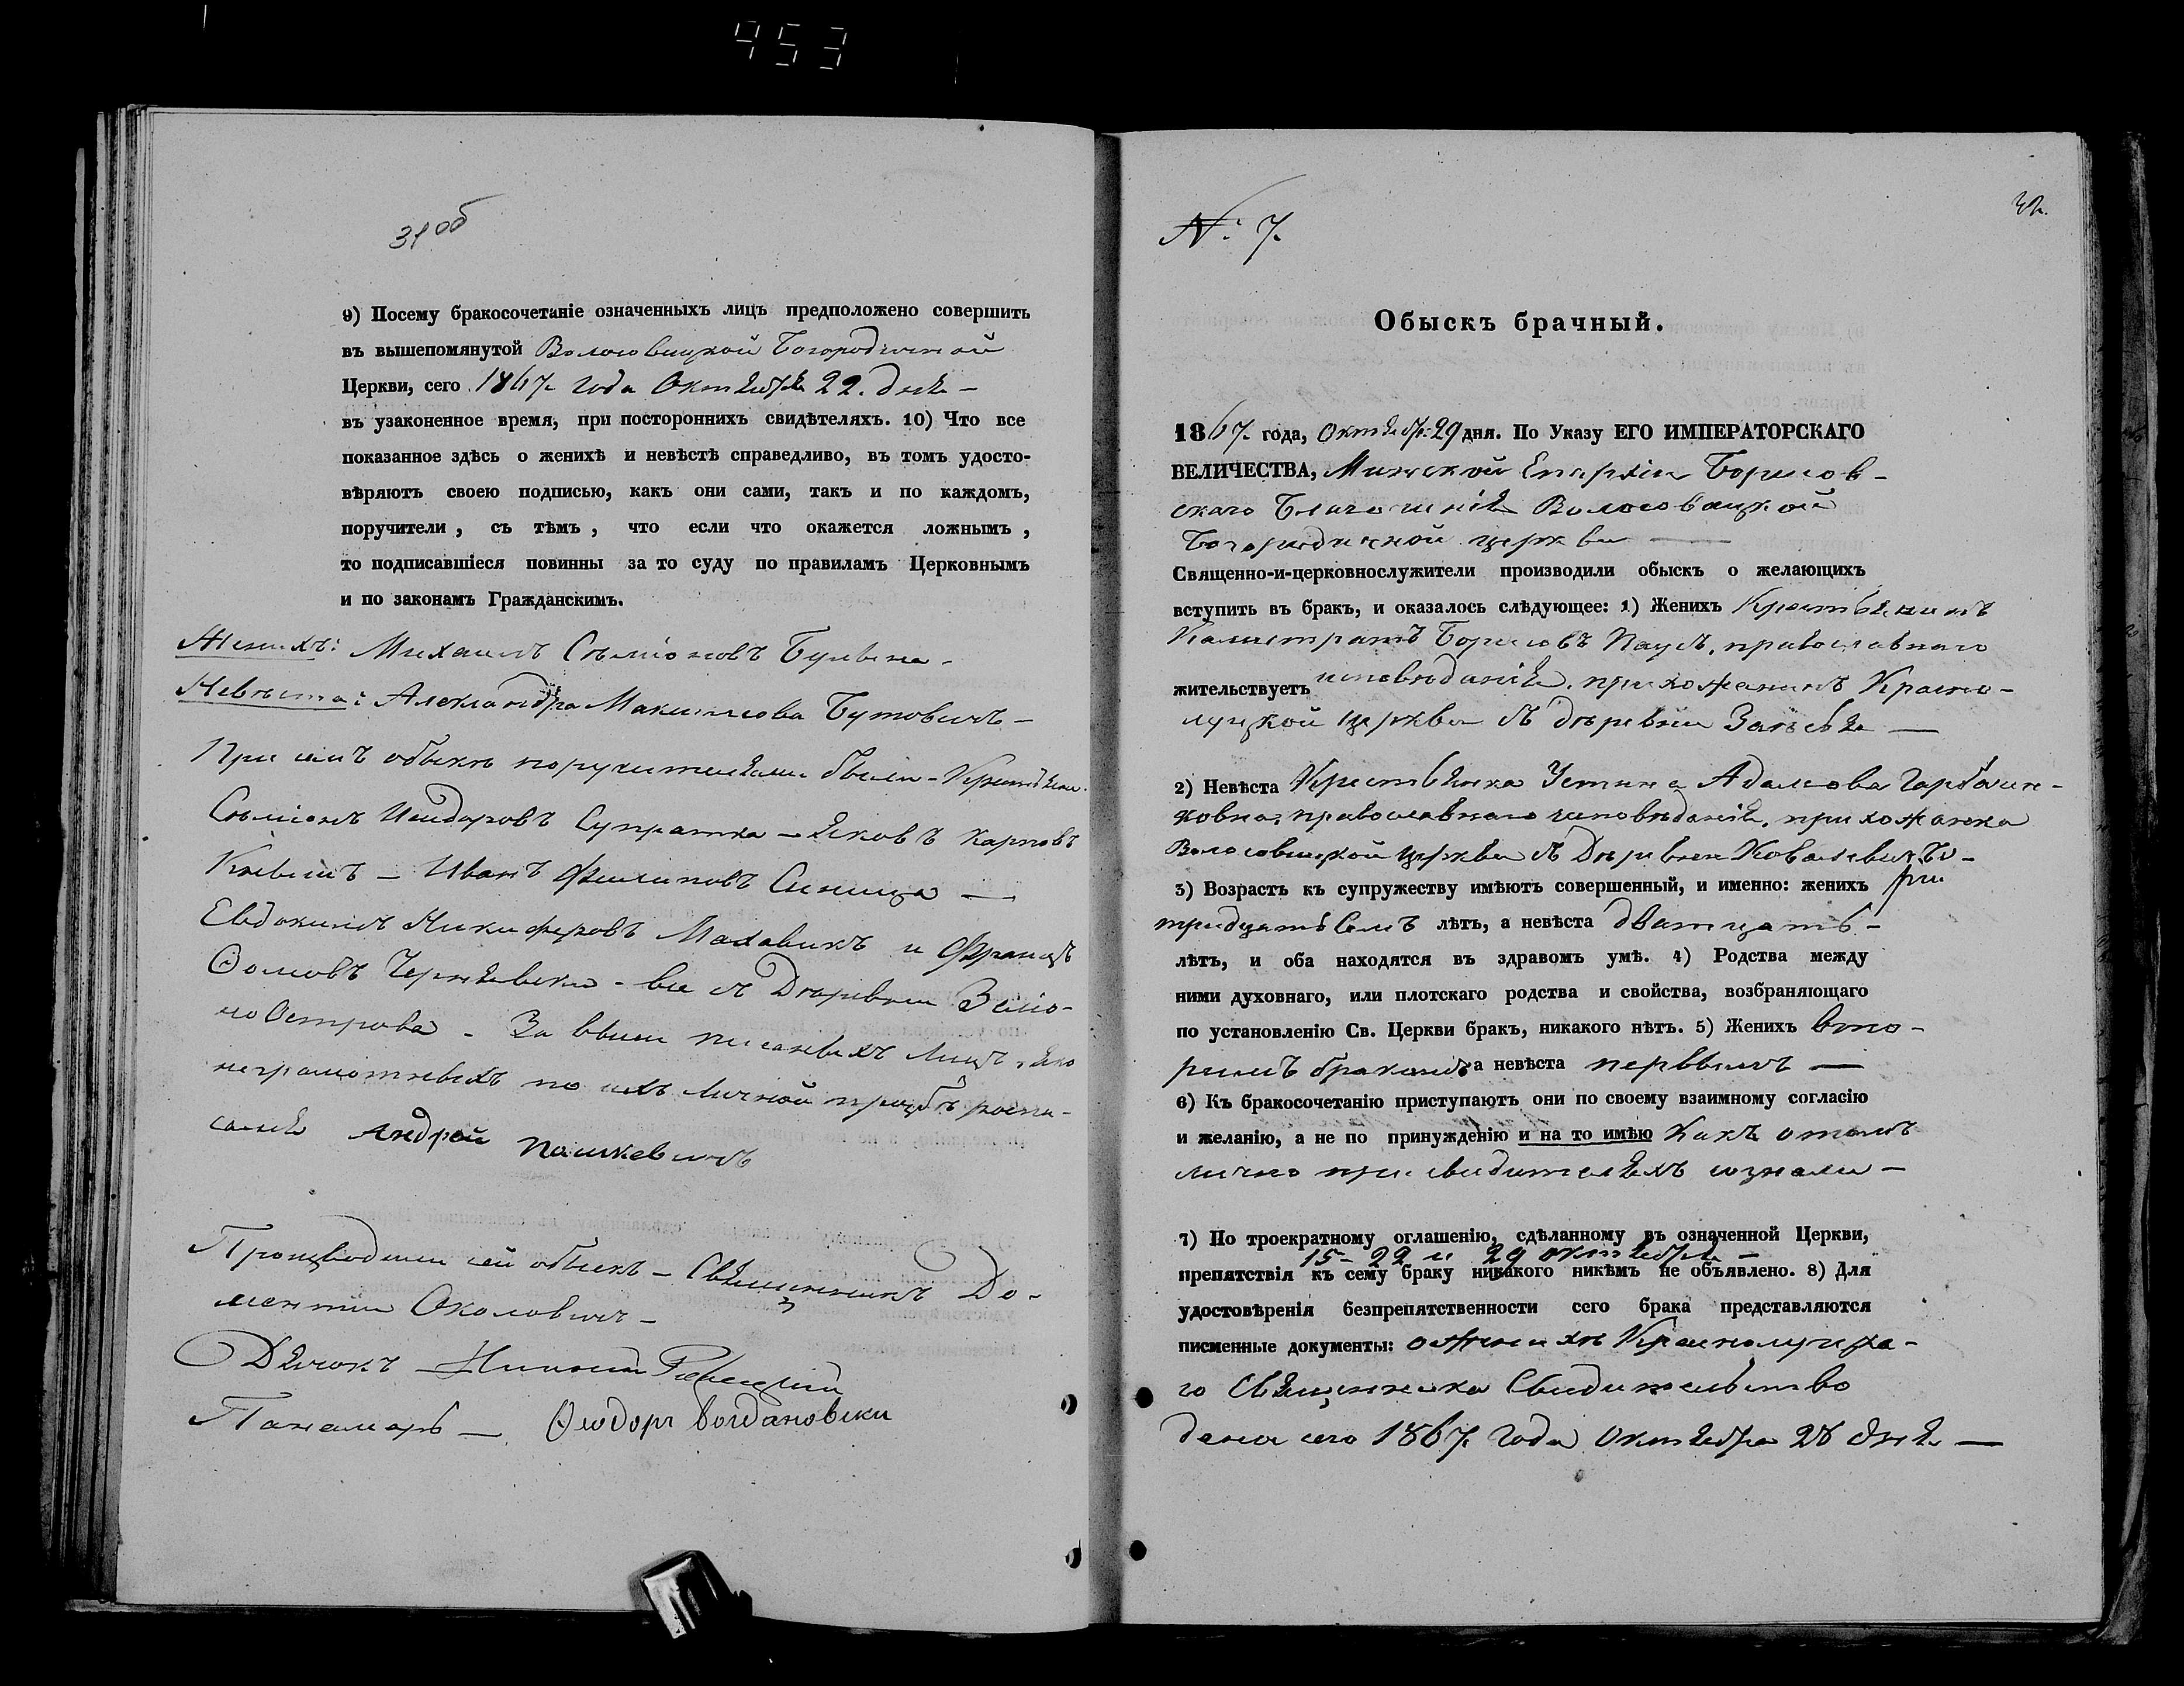 453
31 об
9) Посему бракосочетаніе означенныхъ лицъ предположено совершить
въ вышепомянутой Волосовицкой Богородичной
Церкви, сего 1867 года Октября 22. дня –
въ узаконенное время, при постороннихъ свидѣтеляхъ. 10) Что все
показанное здѣсь о женихѣ и невѣстѣ справедливо, въ томъ удосто-
вѣряютъ своею подписью, какъ они сами, такъ и по каждомъ,
поручители, съ тѣмъ, что если что окажется ложнымъ,
то подписавшіеся повинны за то суду по правиламъ Церковнымъ
и по законамъ Гражданскимъ.
Женихъ: Михаилъ Сѣміоновъ
Невѣста: Александра Бутовичъ –
При семъ обыскѣ поручителями были –
Сѣміонъ Супратка – Яковъ Карповъ
– Иванъ Филиповъ Синица —
Евдокимъ Никифоровъ Махавикъ и Францъ
– все съ Дѣревни
Острова – За лицъ, яко
неграмотныхъ по ихъ личной прозбѣ роспи-
Андрей Пашкевичъ
Производили сей обыскъ – Священникъ До-
Околовичъ –
Дячокъ –
Панамарь – Ѳеодоръ Богдановски
№ 7.
32.
Обыскъ брачный.
1867 года, Октябр: 29 дня. По Указу ЕГО ИМПЕРАТОРСКАГО
ВЕЛИЧЕСТВА, Минской Епархіи Борисов-
скаго Благочинія Волосовицкой
Богородичной церкви —
Священно-и-церковнослужители производили обыскъ о желающихъ
вступить въ бракъ, и оказалось слѣдующее: 1) Женихъ Крестьянинъ
Калистратъ Борисовъ Пауль, православнаго
жительствуетъ исповѣданія, прихожанинъ Красно-
луцкой церкви съ дѣревни —
2) Невѣста Крестьянка Устина Адамова
православнаго исповѣданія, прихожанка
Волосовицкой церкви съ Дѣревни
3) Возрастъ къ супружеству имѣютъ совершенный, и именно: женихъ
тридцать семъ лѣтъ, а невѣста дватцать –
лѣтъ, и оба находятся въ здравомъ умѣ. 4) Родства между
ними духовнаго, или плотскаго родства и свойства, возбраняющаго
по установленію Св. Церкви бракъ, никакого нѣтъ. 5) Женихъ вто-
римъ бракомъ а невѣста первымъ —
6) Къ бракосочетанію приступаютъ они по своему взаимному согласію
и желанію, а не по принужденію и на то имѣю какъ о томъ
лично при свидителяхъ сознали –
7) По троекратному оглашенію, сдѣланному въ означенной Церкви,
15– 22 и 29 октября –
препятствія къ сему браку никакого никѣмъ не объявлено. 8) Для
удостовѣренія безпрепятственности сего брака представляются
писменные документы: о женихѣ Краснолуцка-
го Священника Свидительство
дана сего 1867 года Октября 28 дня —